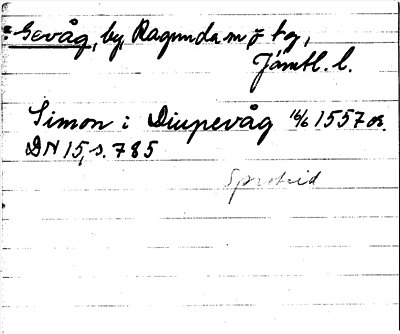 Gevåg, by, Ragunda m f kg,
Jämtl. l.
Simon i Diupevåg 16/6 1557 or.
DN 15, s. 785